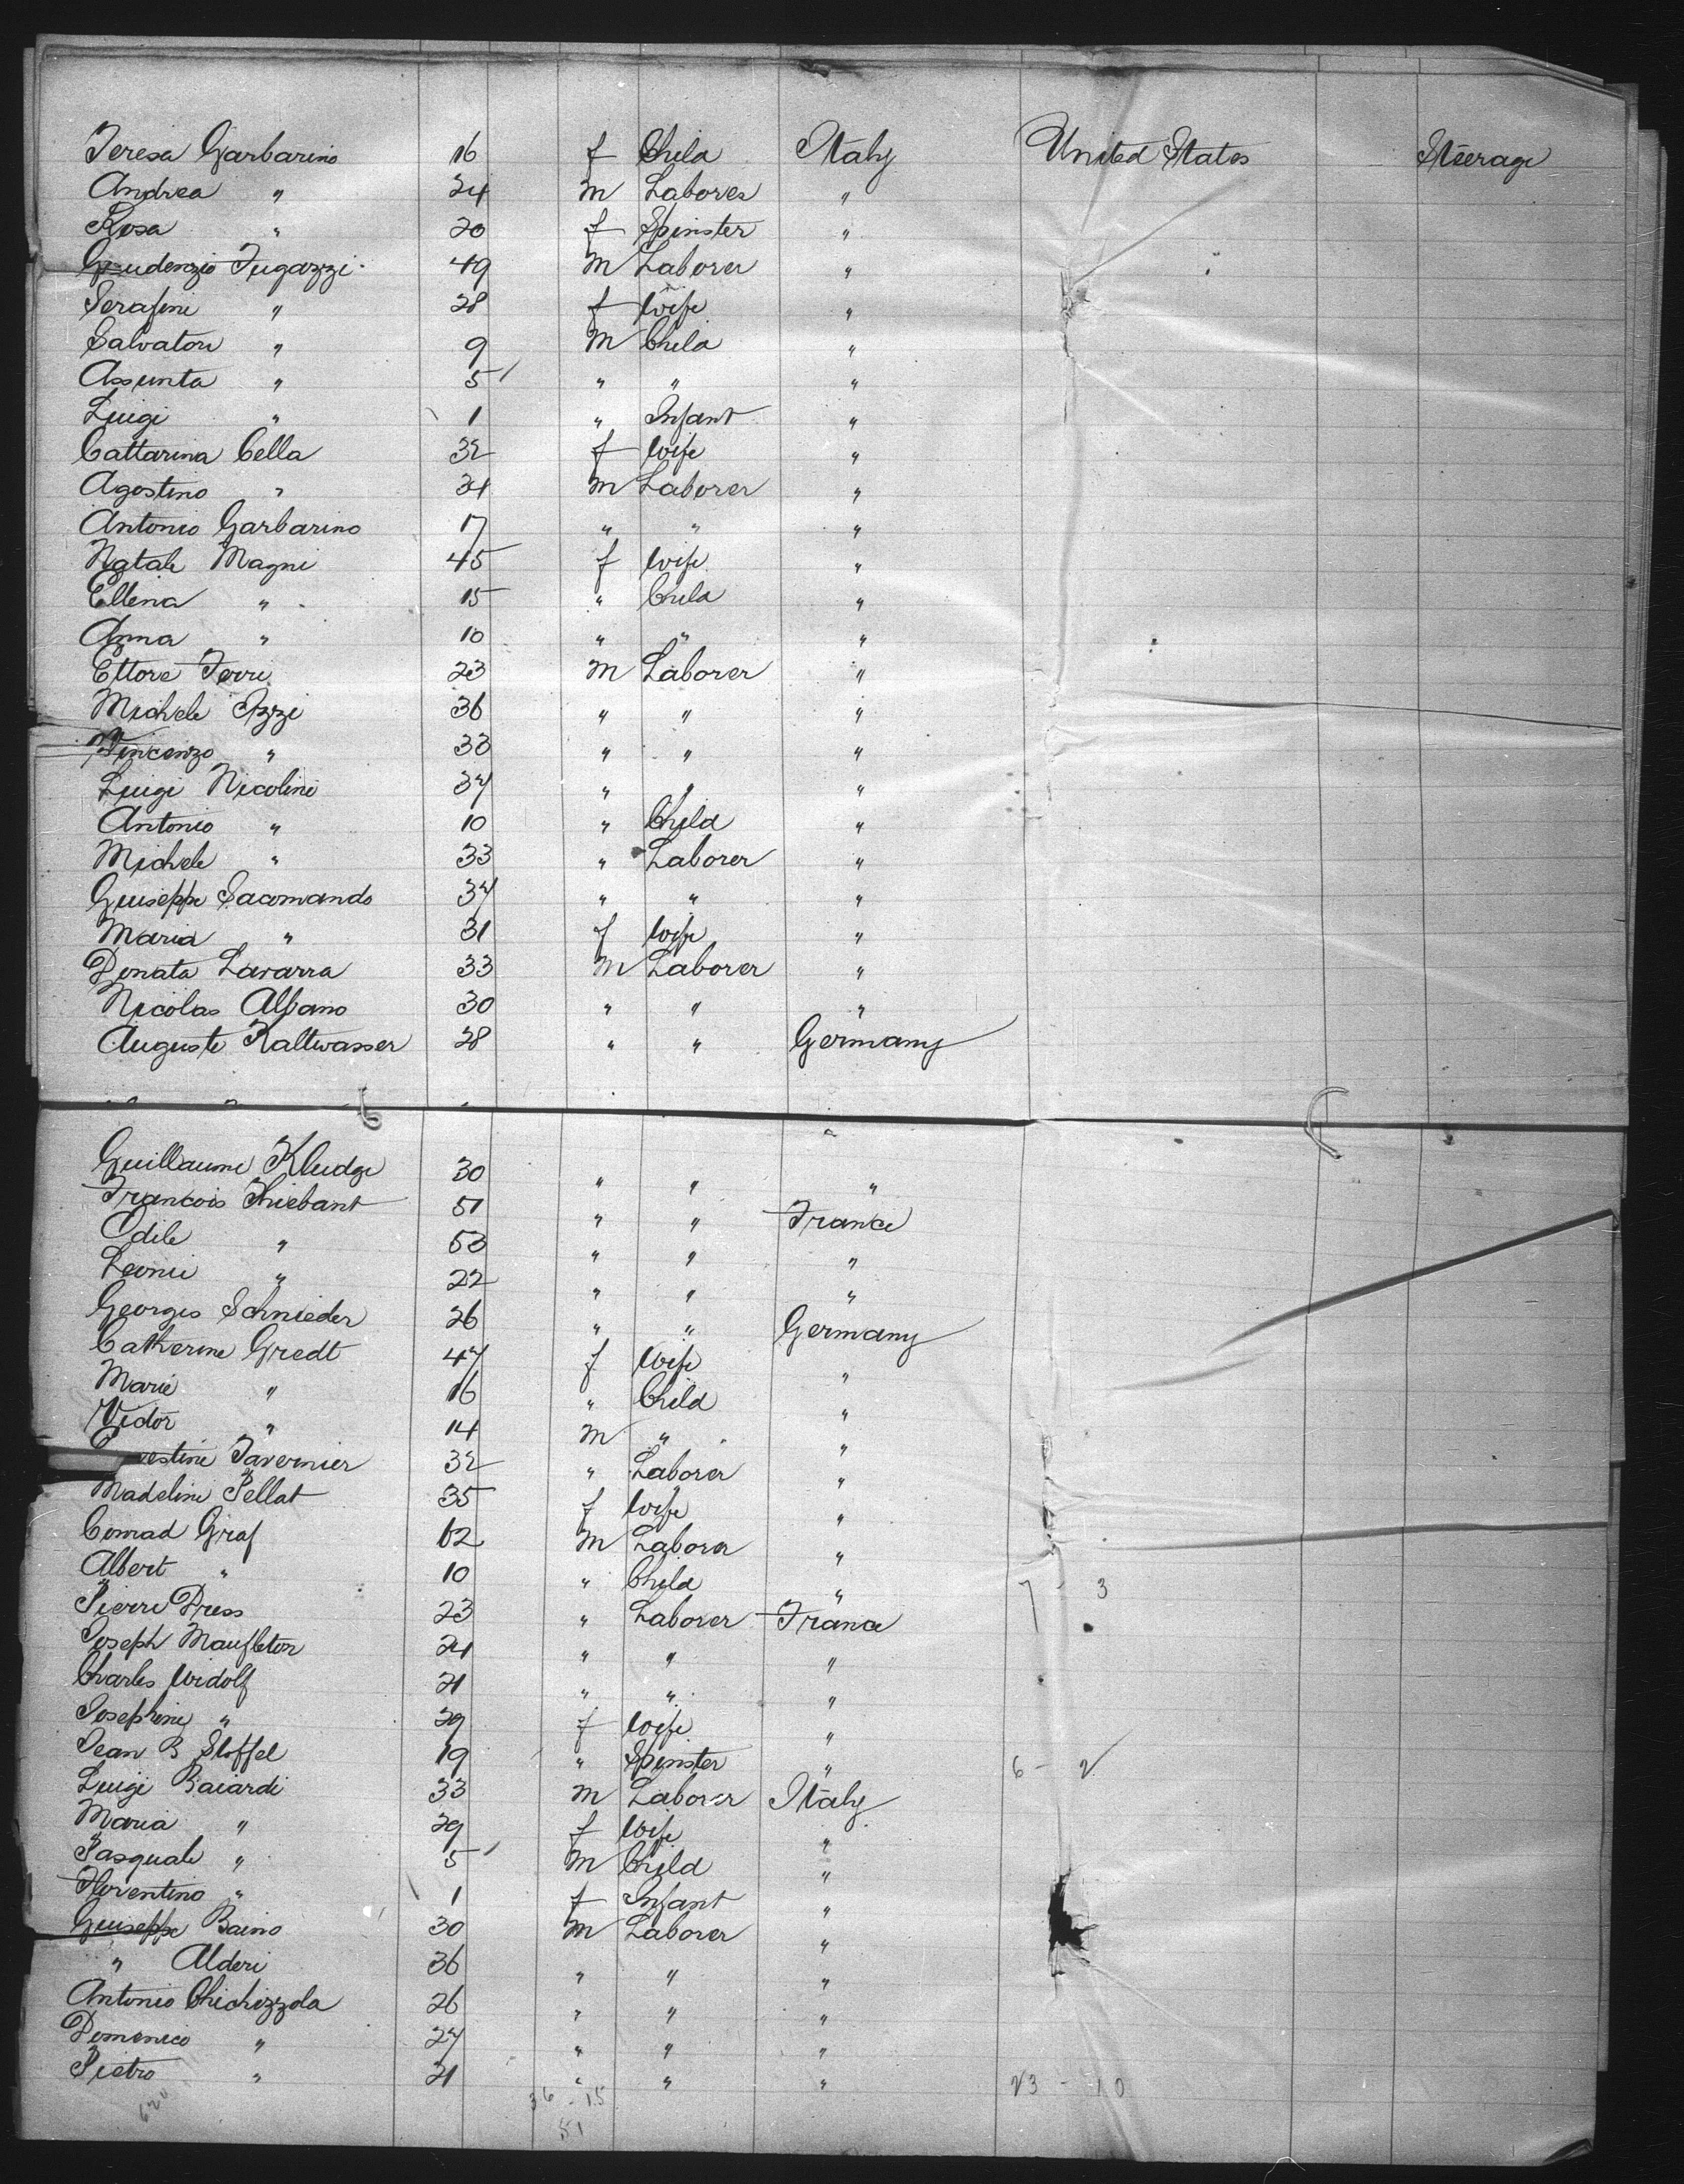 Teresa Garbarino 16 f Child Italy United States Steerage
Andrea " 24 m Laborer "
Rosa " 20 f Spinster "
Gaudenzio Fugazzi 49 m Laborer "
Serafini " 28 f Wife "
Salvatore " 9 m Child "
Assunta " 5 " " "
Luigi " 1 " Infant "
Cattarina Cella 32 f Wife "
Agostino " 34 m Laborer "
Antonio Garbarino 17 " " "
Natale Magni 45 f Wife "
Ellena " 15 " Child "
Anna " 10 " " "
Ettore Ferri 23 m Laborer "
Michele Izzi 36 " " "
Vincenzo " 33 " " "
Luigi Nicolini 37 " " "
Antonio " 10 " Child "
Michele " 33 " Laborer "
Guiseppe Sacomando 37 " " "
Maria " 31 f Wife "
Donata Lavarra 33 m Laborer "
Nicolas Albano 30 " " "
Auguste Kaltwasser 28 " " Germany
Guillaume Kludge 30 " " "
Francois Thiebant 51 " " France
Odile " 53 " " "
Leonie " 22 " " "
Georges Schnieder 26 " " Germany
Catherine Gredt 47 f Wife "
Marie " 16 " Child "
Vidor " 14 m " "
Tavernier 32 " Laborer "
Madeline Pellat 35 f Wife "
Conrad Graf 62 m Laborer "
Albert " 10 " Child " 7 - 3
Pierre Press 23 " Laborer France
Joseph Maufleton 24 " " "
Charles Widolf 21 " " "
Josephine " 29 f Wife "
Jean B Stoffel 19 " Spinster " 6 - 2
Luigi Baiardi 33 m Laborer Italy
Maria " 29 f Wife "
Pasquale " 5 m Child "
Florentino " 1 f Infant "
Guiseppe Baino 30 m Laborer "
" Alderi 36 " " "
Antonio Chichizzola 26 " " "
Domenico " 27 " " "
Pietro " 21 " " " 23 - 10
36 - 15
51